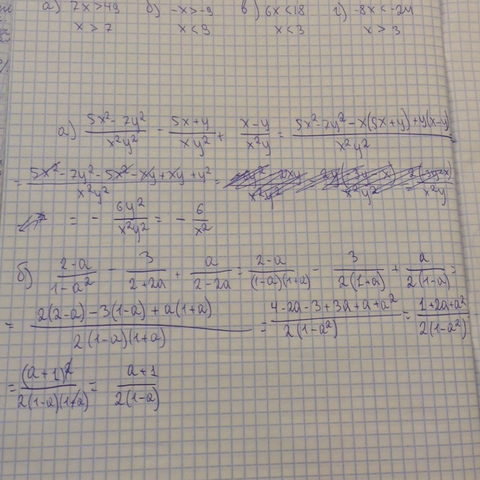 а) 7x>49 б) -x>-9 в) 6x<18 г) -8x<-24
x>7 x<9 x<3 x>3
а) (5x²-7y²)/(x²y²) - (5x+y)/(xy²) + (x-y)/(x²y) = (5x²-7y²-x(5x+y)+y(x-y))/(x²y²)
= (5x²-7y²-5x²-xy+xy+y²)/(x²y²) =
= -(6y²)/(x²y²) = -6/x²
б) (2-a)/(1-a²) - 3/(2+2a) + a/(2-2a) = (2-a)/((1-a)(1+a)) - 3/(2(1+a)) + a/(2(1-a)) =
= (2(2-a)-3(1-a)+a(1+a))/(2(1-a)(1+a)) = (4-2a-3+3a+a+a²)/(2(1-a²)) = (1+2a+a²)/(2(1-a²))
= (a+1)²/(2(1-a)(1+a)) = (a+1)/(2(1-a))